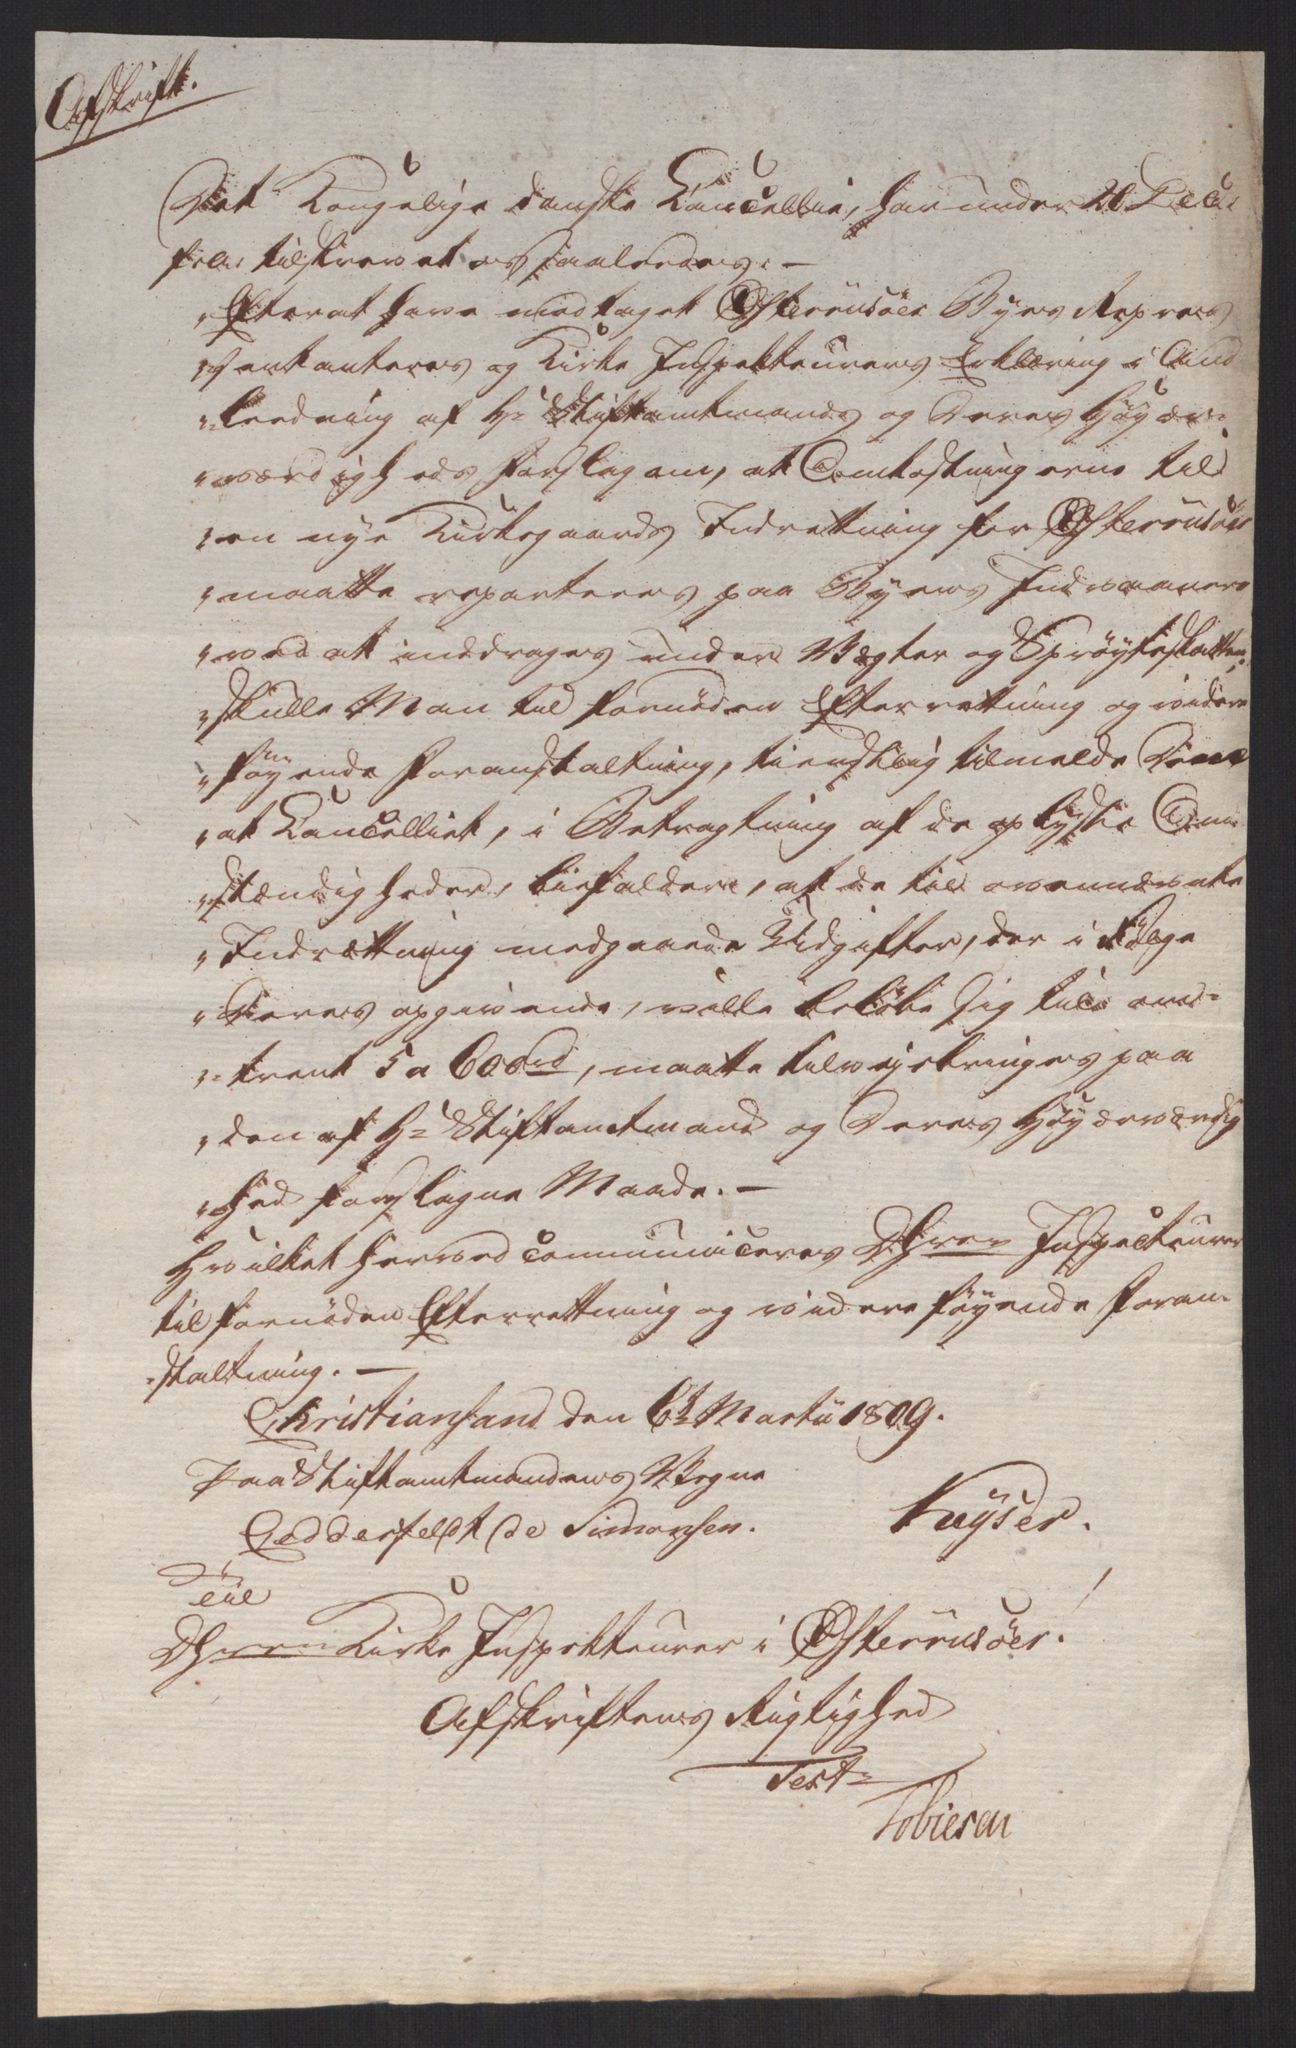 Afskrift.
Det Kongelige danske Cancellie, har under 28 Decbr
f. A. tilskrevet os saaledes. —
"Efterat have modtaget Østerriisöer Byes Repræ-
"sentanteres og Kirke Inspekteurens Erklæring i And
"ledning af Hr Stiftamtmands og Deres Höyær-
"værdigheds Forslag om, at Omkostningerne til
"en nye Kirkegaards Indrettning for Østerriisöer
"maatte reparteres paa Byens Indvaanere
"ved at inddrages under Vægter og Spröyteskatten,
"skulle Man til fornöden Efterrettning og videre
"föyende Foranstaltning, tienstlig tilmelde Dem
"at Cancelliet, i Betragtning af de oplyste Om-
"stændigheder, bifalder, at de til ovennævnte
"Indrættning medgaaede Udgifter, der i Fölge
"Deres opgivende, ville belöbe sig til om-
"trent 5 a 600rd, maatte tilveyebringes paa
"den af Hr Stiftamtmand og Deres Höyærværdig
"hed foreslagne Maade. —
Hvilket herved communiceres DHrrer Inspecteurer
til fornöden Efterrettning og videre föyende Foran-
staltning. —
Christiansand den 6t Martii 1809.
Paa Stiftamtmandens Vegne
Cedderfeldt de Simonsen. Keyser.
Til
DHrrer Kirke Inspekteurer i Østerriisöer!
Afskriftens Rigtighed
Test:
Tobiesen